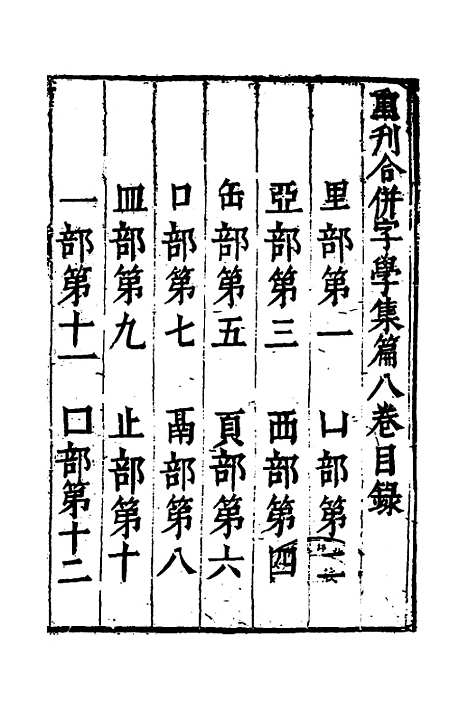 重刊合併字學集篇八卷目録
里部第一 凵部第二
亞部第三 西部第四
缶部第五 頁部第六
口部第七 鬲部第八
皿部第九 止部第十
一部第十一 囗部第十二